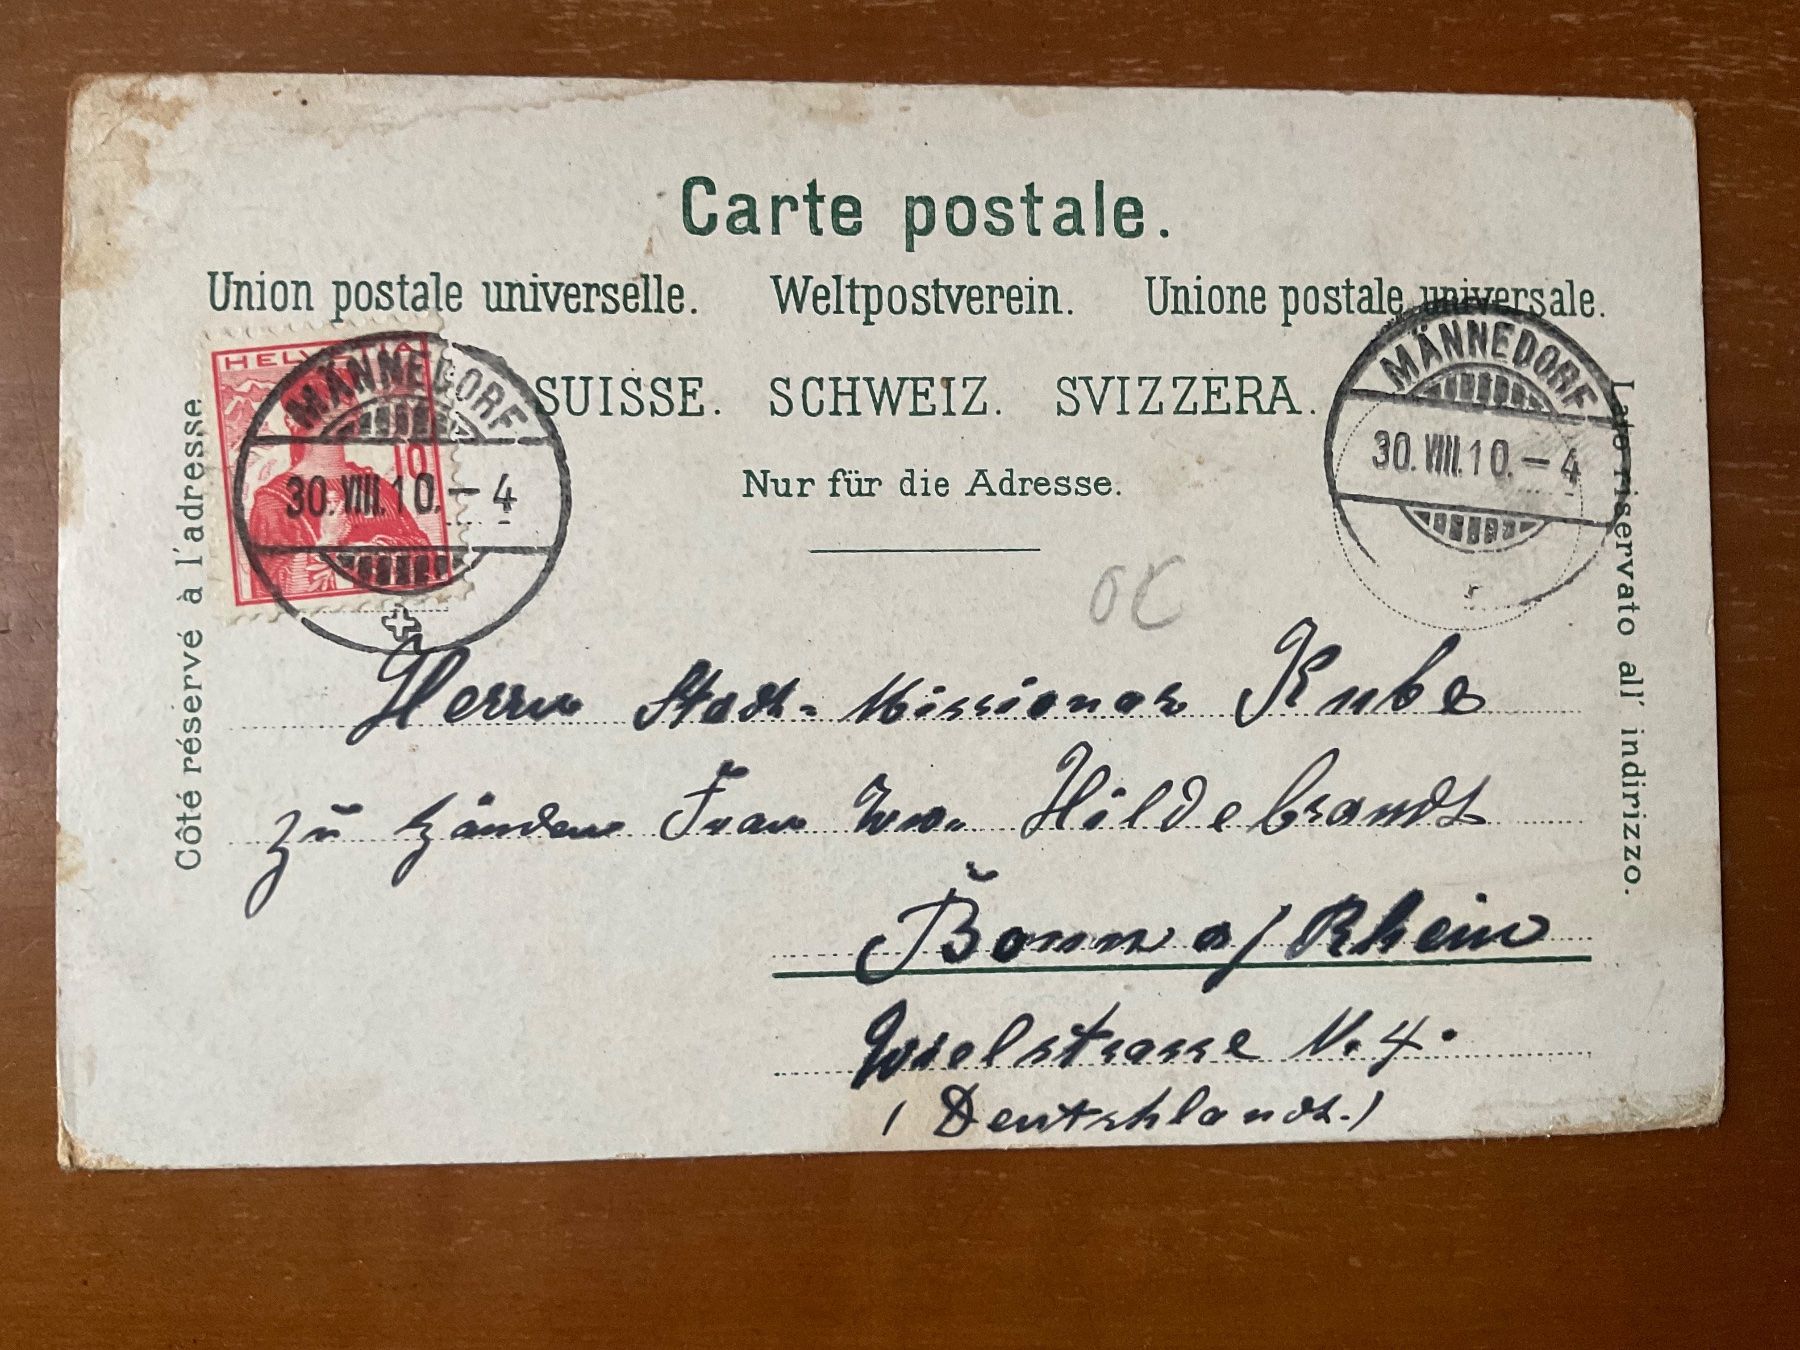 Carte postale.
Union postale universelle. Weltpostverein. Unione postale universale.
SUISSE. SCHWEIZ. SVIZZERA.
Nur für die Adresse.
Côté réservé à l'adresse.
Lato riservato all' indirizzo.
HELVETIA
10
MÄNNEDORF
30.VIII.10.-4
MÄNNEDORF
30.VIII.10.-4
Herrn Stadt-Missionar Kube
zu Händen Frau Ww. Hildebrandt
Bonn a/Rhein
N. 4.
(Deutschland.)